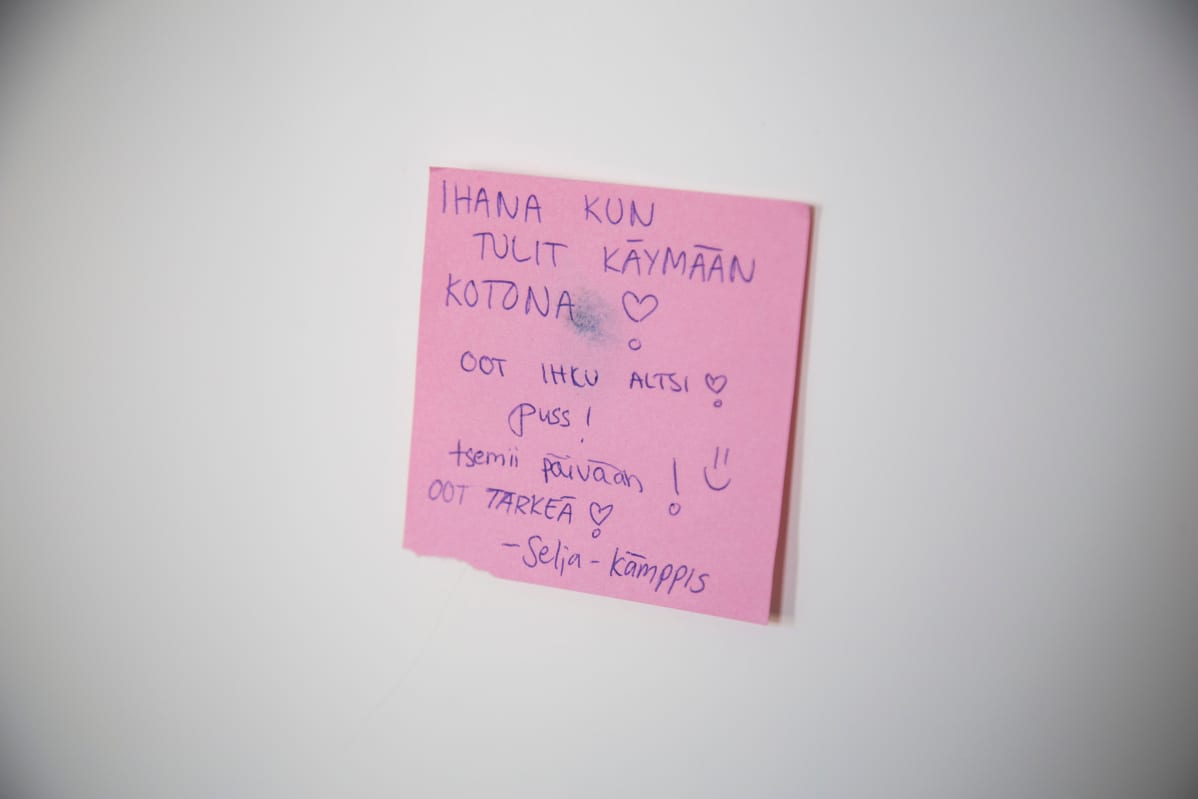 IHANA KUN
TULIT KÄYMÄÄN
KOTONA ♡
OOT IHKU ALTSI ♡
puss!
tsemii päivään! :)
OOT TÄRKEÄ ♡
-Selja-kämppis